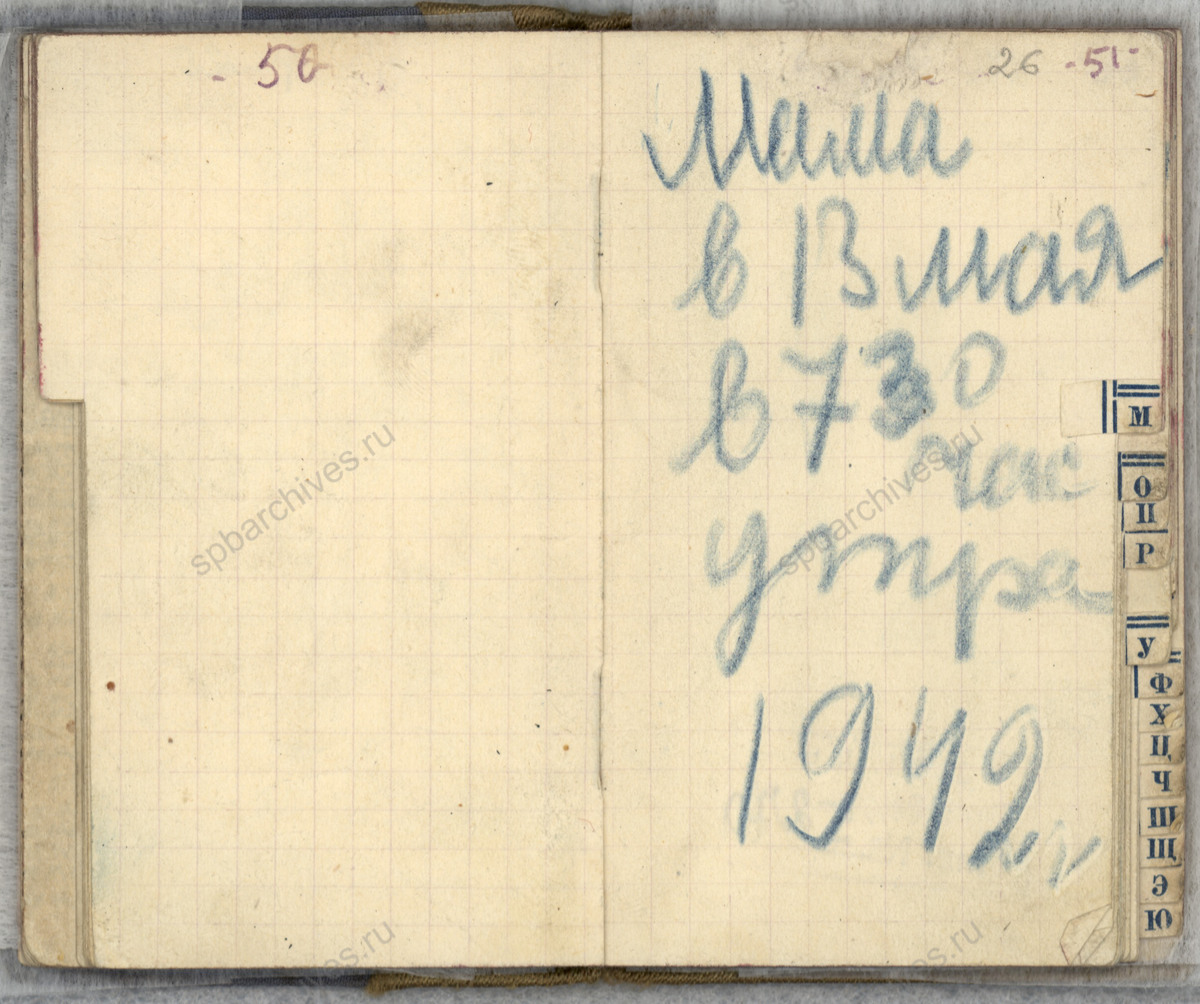 - 50
26 -51-
Мама
в 13 мая
в 7 30
час
утра
1942 г
М
О
П
Р
У
Ф
Х
Ц
Ч
Ш
Щ
Э
Ю
spbarchives.ru
spbarchives.ru
spbarchives.ru
spbarchives.ru